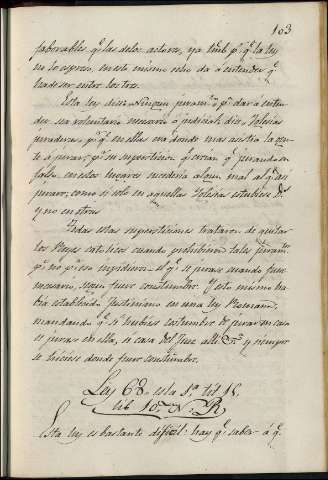 103
faborables q.e las de los actores, ya tamb.n p.r q.e la ley
no lo expresa, en este mismo echo da á entender q.e
ha de ser entre los tres.
Esta ley dice: Ninguen juram.to p.r dar á enten-
der sea voluntario necesario ó judicial: dice, Iglesias
juraderas, p.r q.e en ellas era donde mas asistia la gen-
te á jurar, p.r su supersticion q.e creian q.e jurando en
falso en estos lugares sucederia algun mal al q.e asi
jurare, como si solo en aquellas Iglesias estubiese D.s
y no en otras
Todas estas supersticiones trataron de quitar
los Reyes catolicos cuando prohibieron tales juram.tos
p.o no p.r eso impidieron el q.e se jurase cuando fuere
necesario, segun fuere costumbre. Y esto mismo ha-
bia establecido Justiniano en una ley Romana,
mandando q.e si hubiese costumbre de jurar en casa
se jurase en ella, si casa del Juez allí &.a y siempre
se hiciese donde fuere costumbre.
Ley 68. es la 5.a tit. 15.
lib. 10. N. R.
Esta ley es bastante dificil: hay q.e saber á q.e